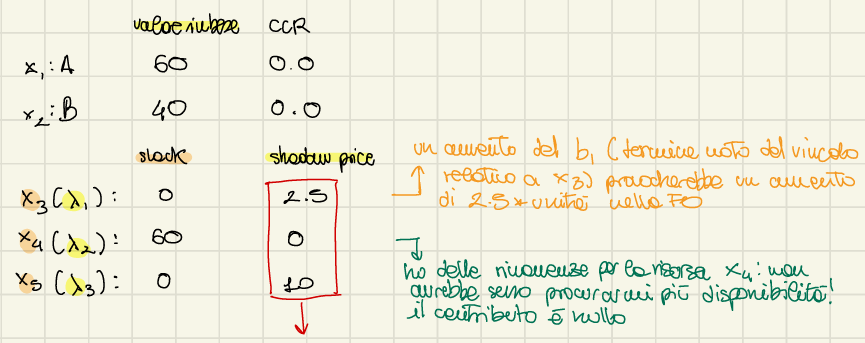 valore in base CCR
x₁: A 60 0.0
x₂: B 40 0.0
slack shadow price
x₃ (λ₁): 0 2.5
x₄ (λ₂): 60 0
x₅ (λ₃): 0 10
un aumento del b₁ (termine noto del vincolo
relativo a x₃) provocherebbe un aumento
di 2.5 * unità nella FO
ho delle rimanenze per la risorsa x₄: non
avrebbe senso procurarmi più disponibilità!
il contributo è nullo